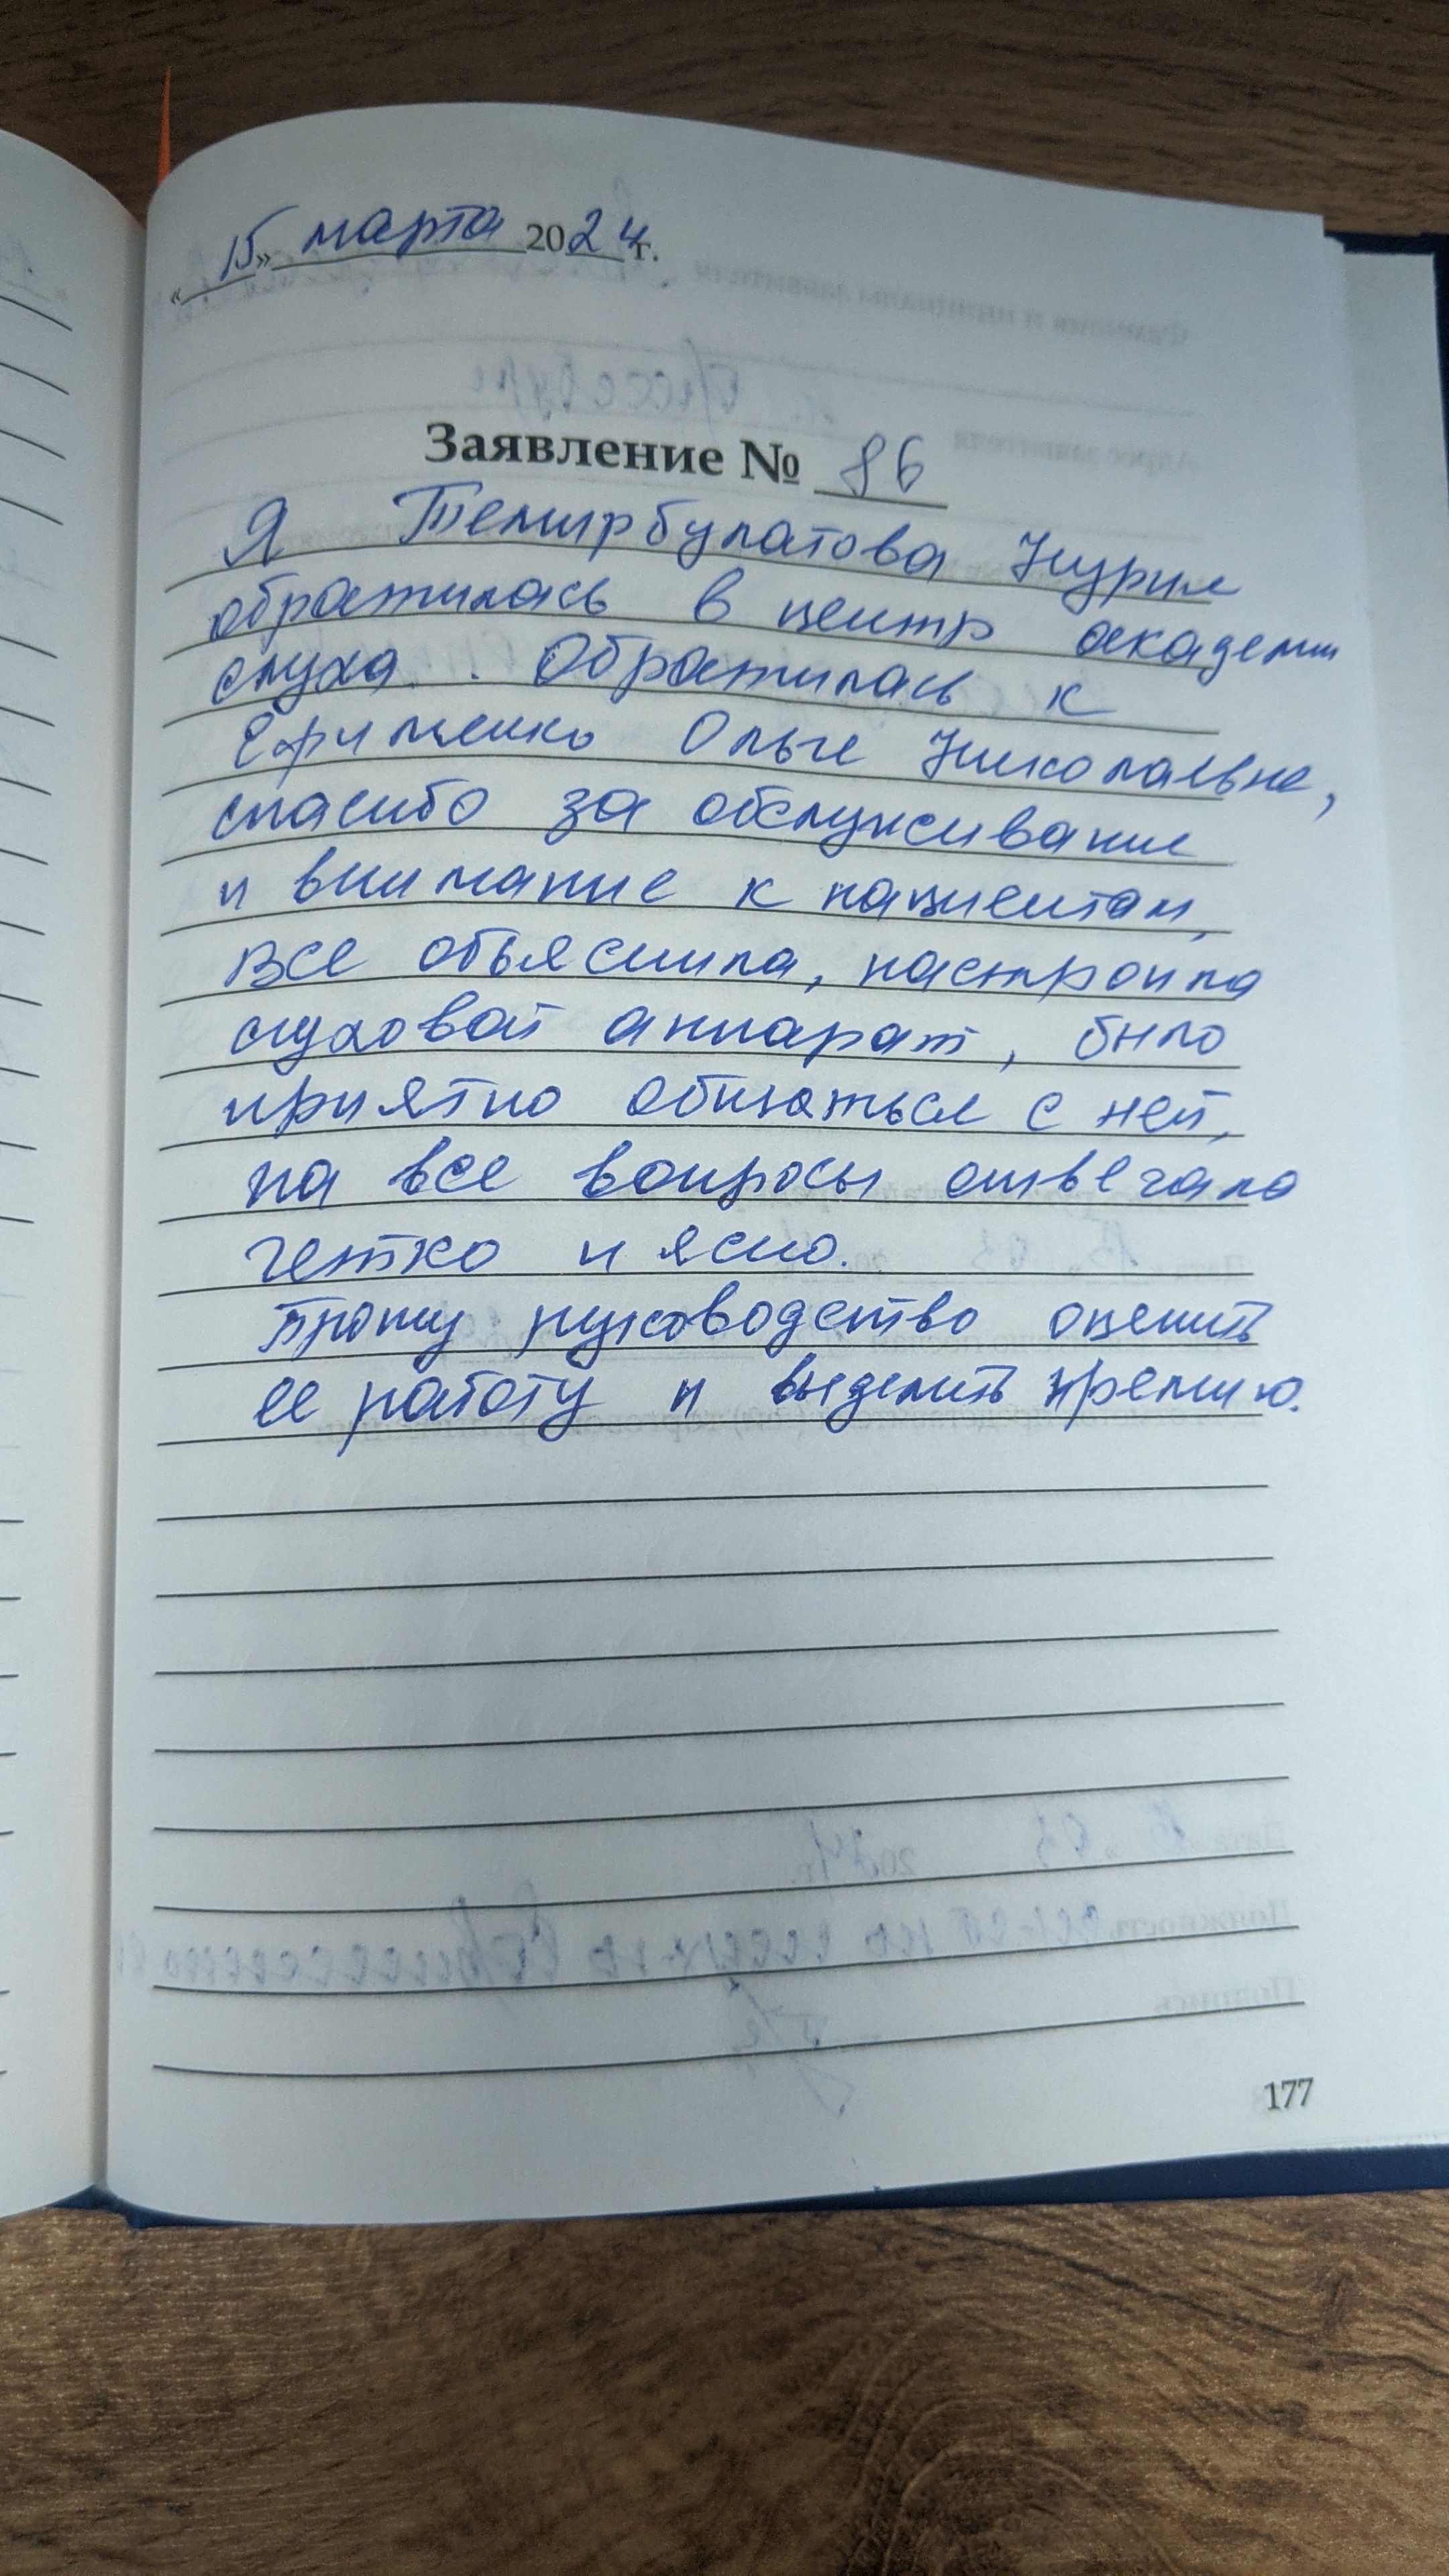 «15» марта 2024г.
Заявление № 86
Я Темирбулатова Нурия
обратилась в центр академии
слуха. Обратилась к
Ефименко Ольге Николаевне,
спасибо за обслуживание
и внимание к пациентам,
все объяснила, настроила
слуховой аппарат, было
приятно общаться с ней,
на все вопросы отвечала
четко и ясно.
Прошу руководство оценить
ее работу и выделить премию.
177